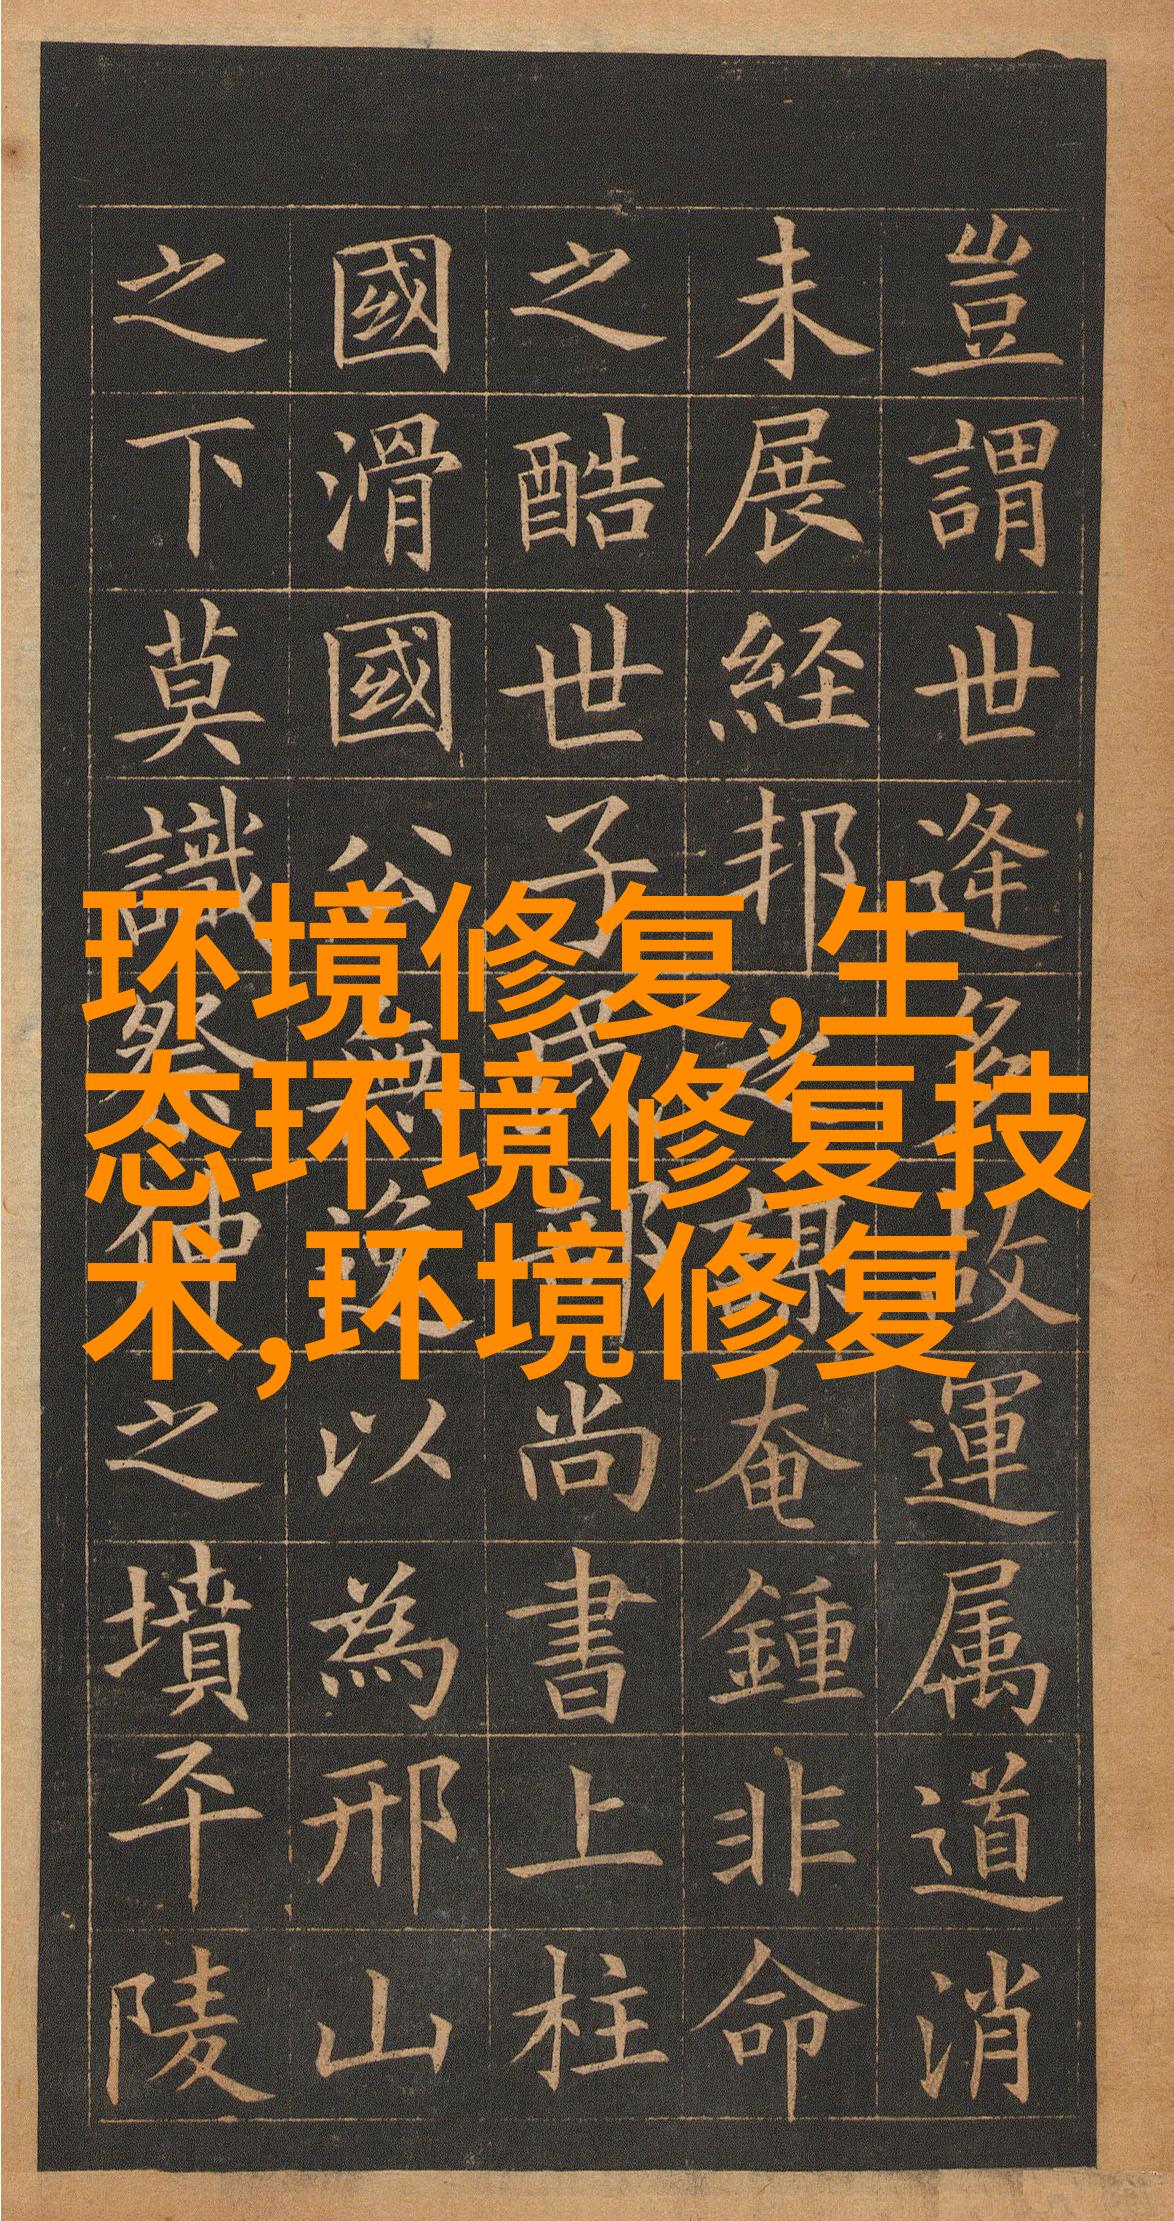 豈謂世逢多故運属道消
未展経邦之謨奄鍾非命
之酷世子民部尚書上柱
國滑國公無逸以為邢山
之下莫識祭仲之墳平陵
环境修复,生
态环境修复技
术,环境修复